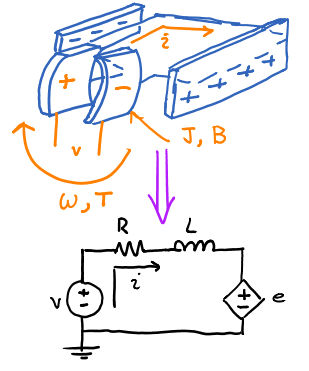 i
+ −
− − − −
+ + + +
v
J, B
ω, T
R L
i
v + − + − e